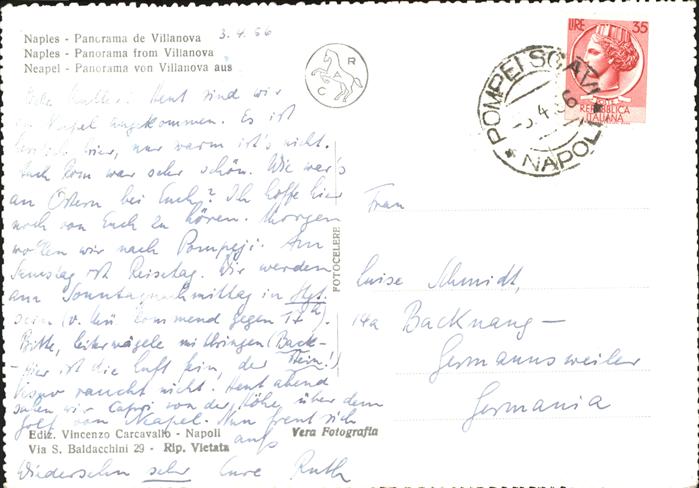 Naples - Panorama de Villanova 3.4.56
Naples - Panorama from Villanova
Neapel - Panorama von Villanova aus
C A R
LIRE 35
POSTE
REPUBBLICA
ITALIANA
POMPEI SCAVI
NAPOLI
Liebe Mutter! Heut sind wir
in Neapel angekommen. Es ist
herrlich hier, nur warm ist's nicht.
Auch Rom war sehr schön. Wie war's
an Ostern bei Euch? Ich hoffe hier
noch von Euch zu hören. Morgen
wollen wir nach Pompeji. Am
Samstag ist Reisetag. Wir werden
am Sonntagnachmittag in Stgt.
sein (v. Mü kommend gegen 17h).
Bitte, Leiterwägele mitbringen (Back-
stein!)
Hier ist die Luft fein, der
Vesuv raucht nicht. Heut abend
sahen wir Capri von der Höhe über dem
Golf von Neapel. Nun freut sich
aufs
Wiedersehn sehr Eure Ruth
FOTOCELERE
Frau
Luise Schmidt,
14a Backnang-
Germannsweiler
Germania
Ediz. Vincenzo Carcavallo - Napoli
Via S. Baldacchini 29 - Rip. Vietata
Vera Fotografia